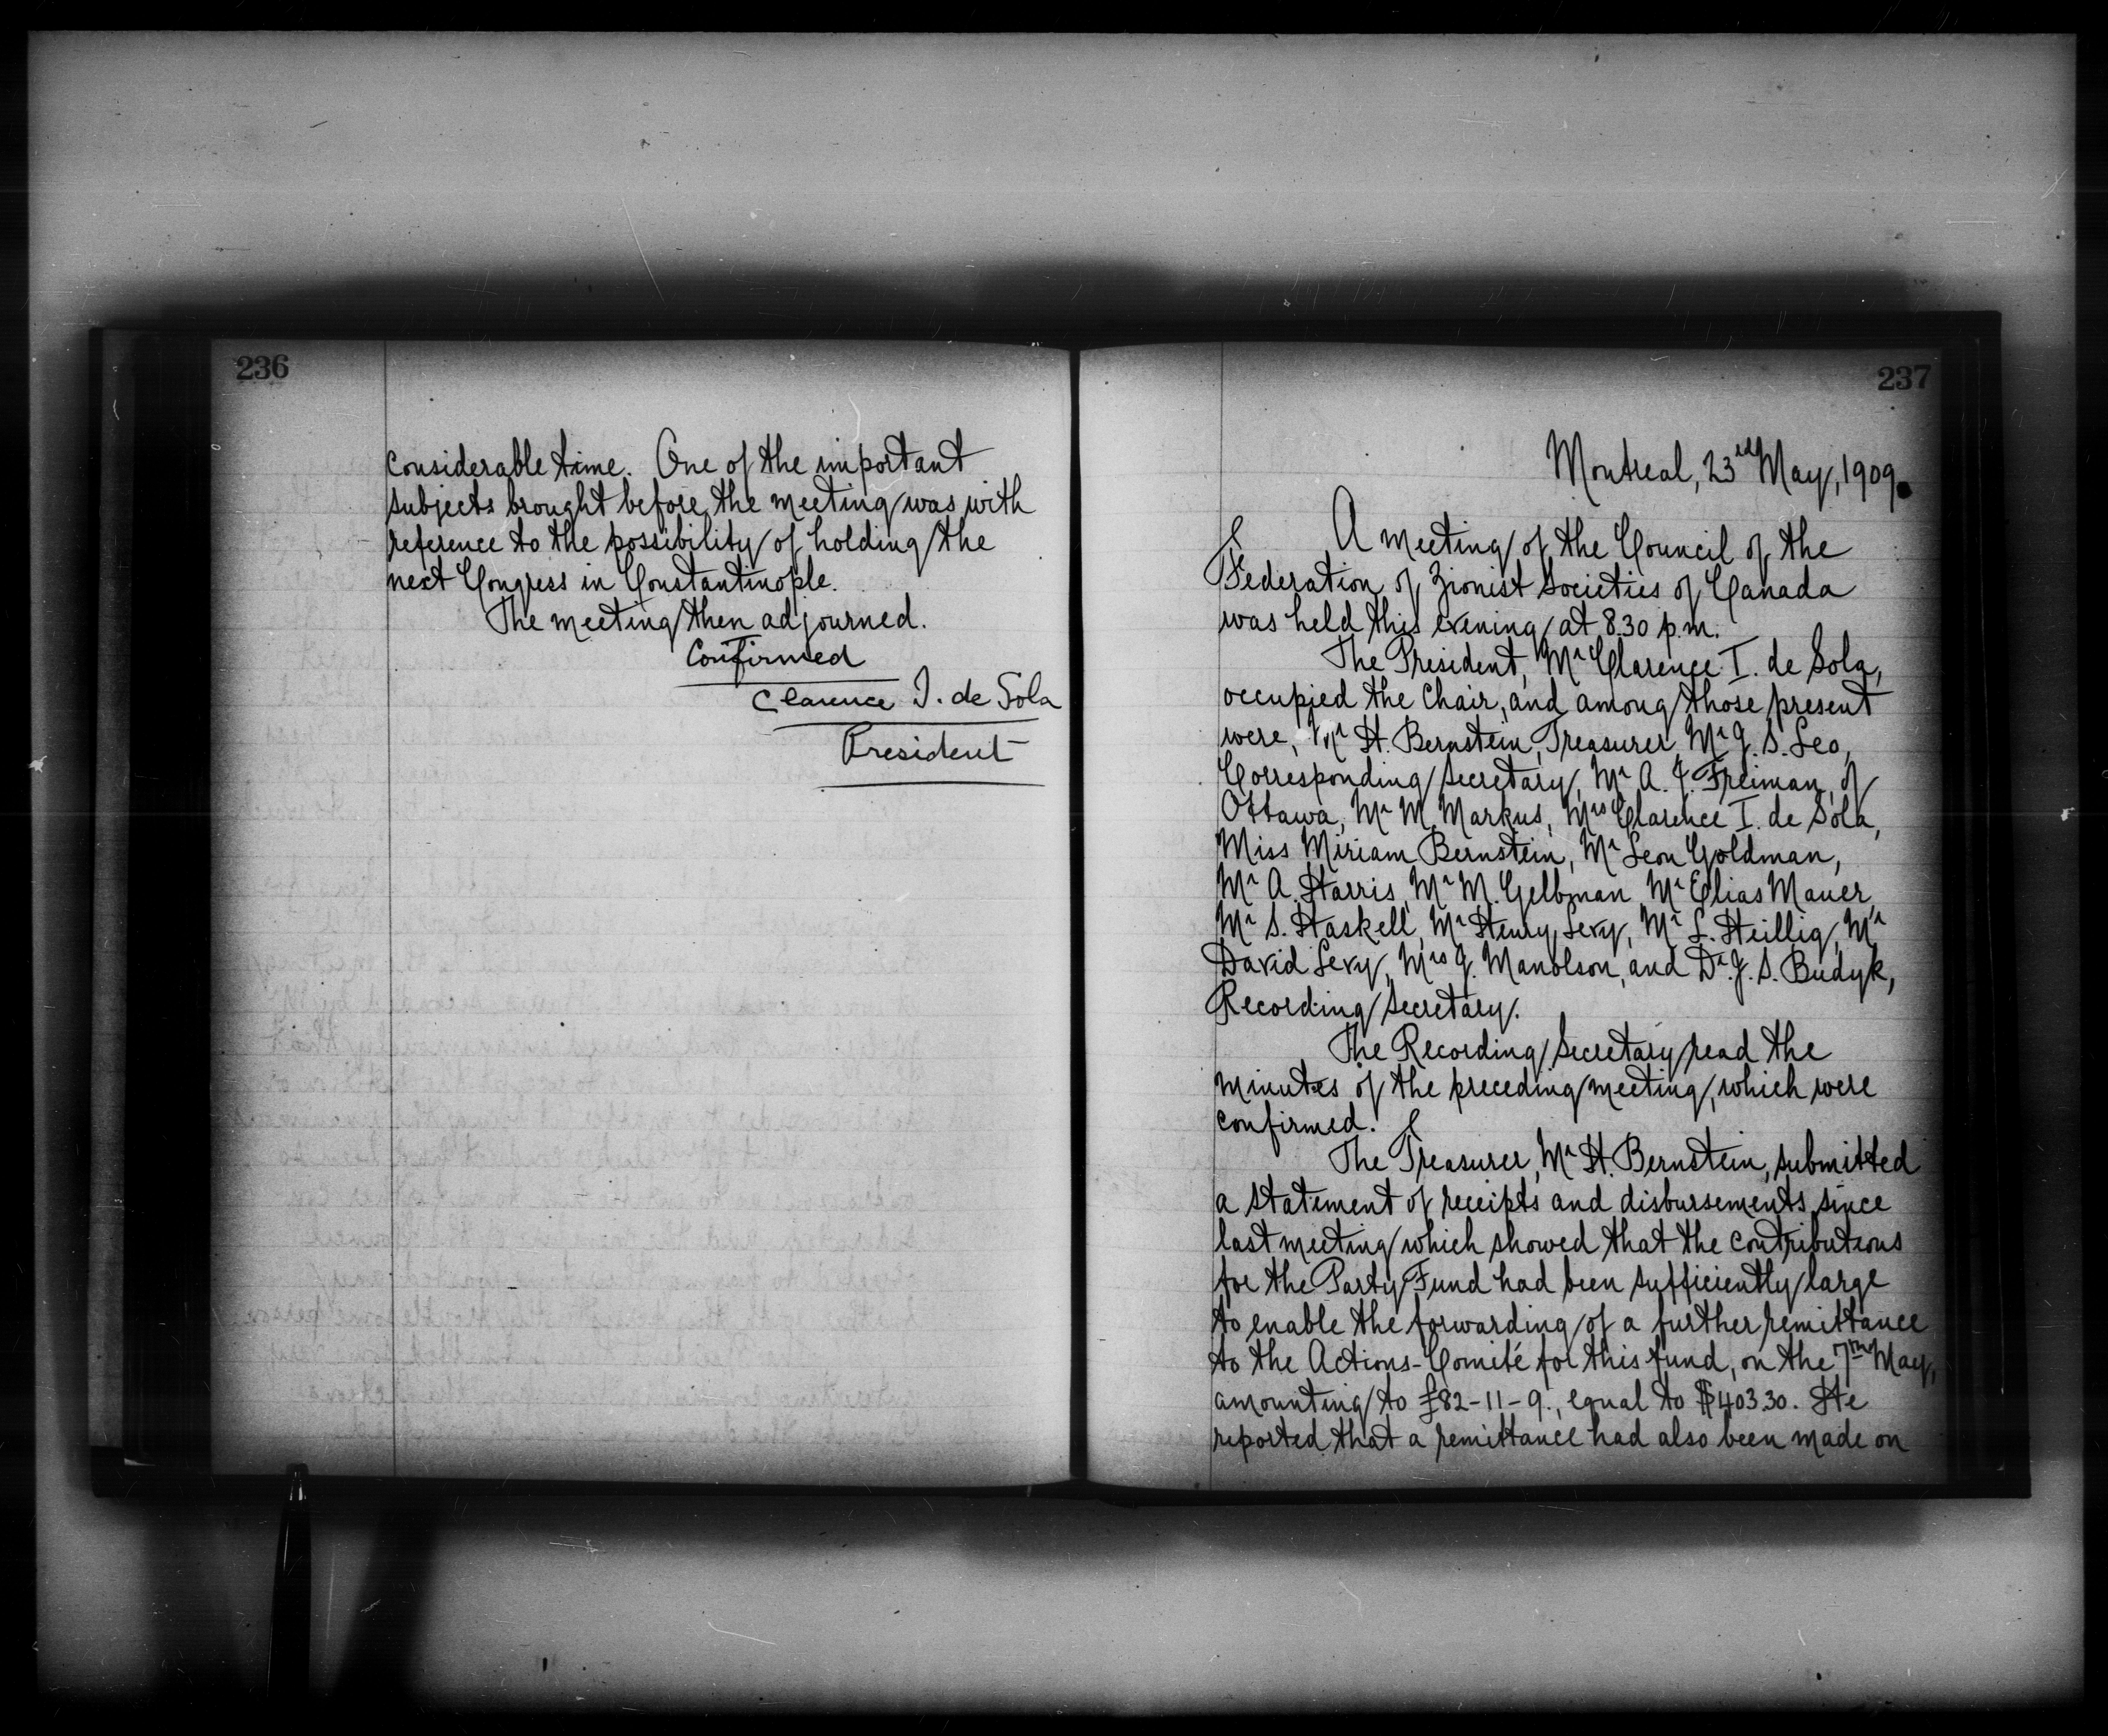 236
considerable time. One of the important
subjects brought before the meeting was with
reference to the possibility of holding the
next Congress in Constantinople.
The meeting then adjourned.
Confirmed
Clarence I. de Sola
President
237
Montreal, 23rd May, 1909.
A meeting of the Council of the
Federation of Zionist Societies of Canada
was held this evening at 8.30 p.m.
The President, Mr Clarence I. de Sola,
occupied the Chair, and among those present
were, Mr H. Bernstein, Treasurer, Mr J. S. Leo,
Corresponding Secretary, Mr A. J. Freiman, of
Ottawa, Mr M. Markus, Mrs Clarence I. de Sola,
Miss Miriam Bernstein, Mr Leon Goldman,
Mr A. Harris, Mr M. Gelbman, Mr Elias Mauer,
Mr S. Haskell, Mr Henry Levy, Mr L. Heillig, Mr
David Levy, Mrs J. Manolson, and Dr. J. S. Budyk,
Recording Secretary.
The Recording Secretary read the
minutes of the preceding meeting, which were
confirmed.
The Treasurer, Mr H. Bernstein, submitted
a statement of receipts and disbursements since
last meeting which showed that the contributions
for the Party Fund had been sufficiently large
to enable the forwarding of a further remittance
to the Actions-Comité for this fund, on the 7th May,
amounting to £82-11-9., equal to $403.30. He
reported that a remittance had also been made on